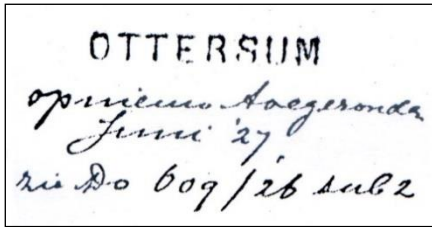 OTTERSUM
opnieuw toegezonden
Juni '27
zie Do 609/26 sub 2